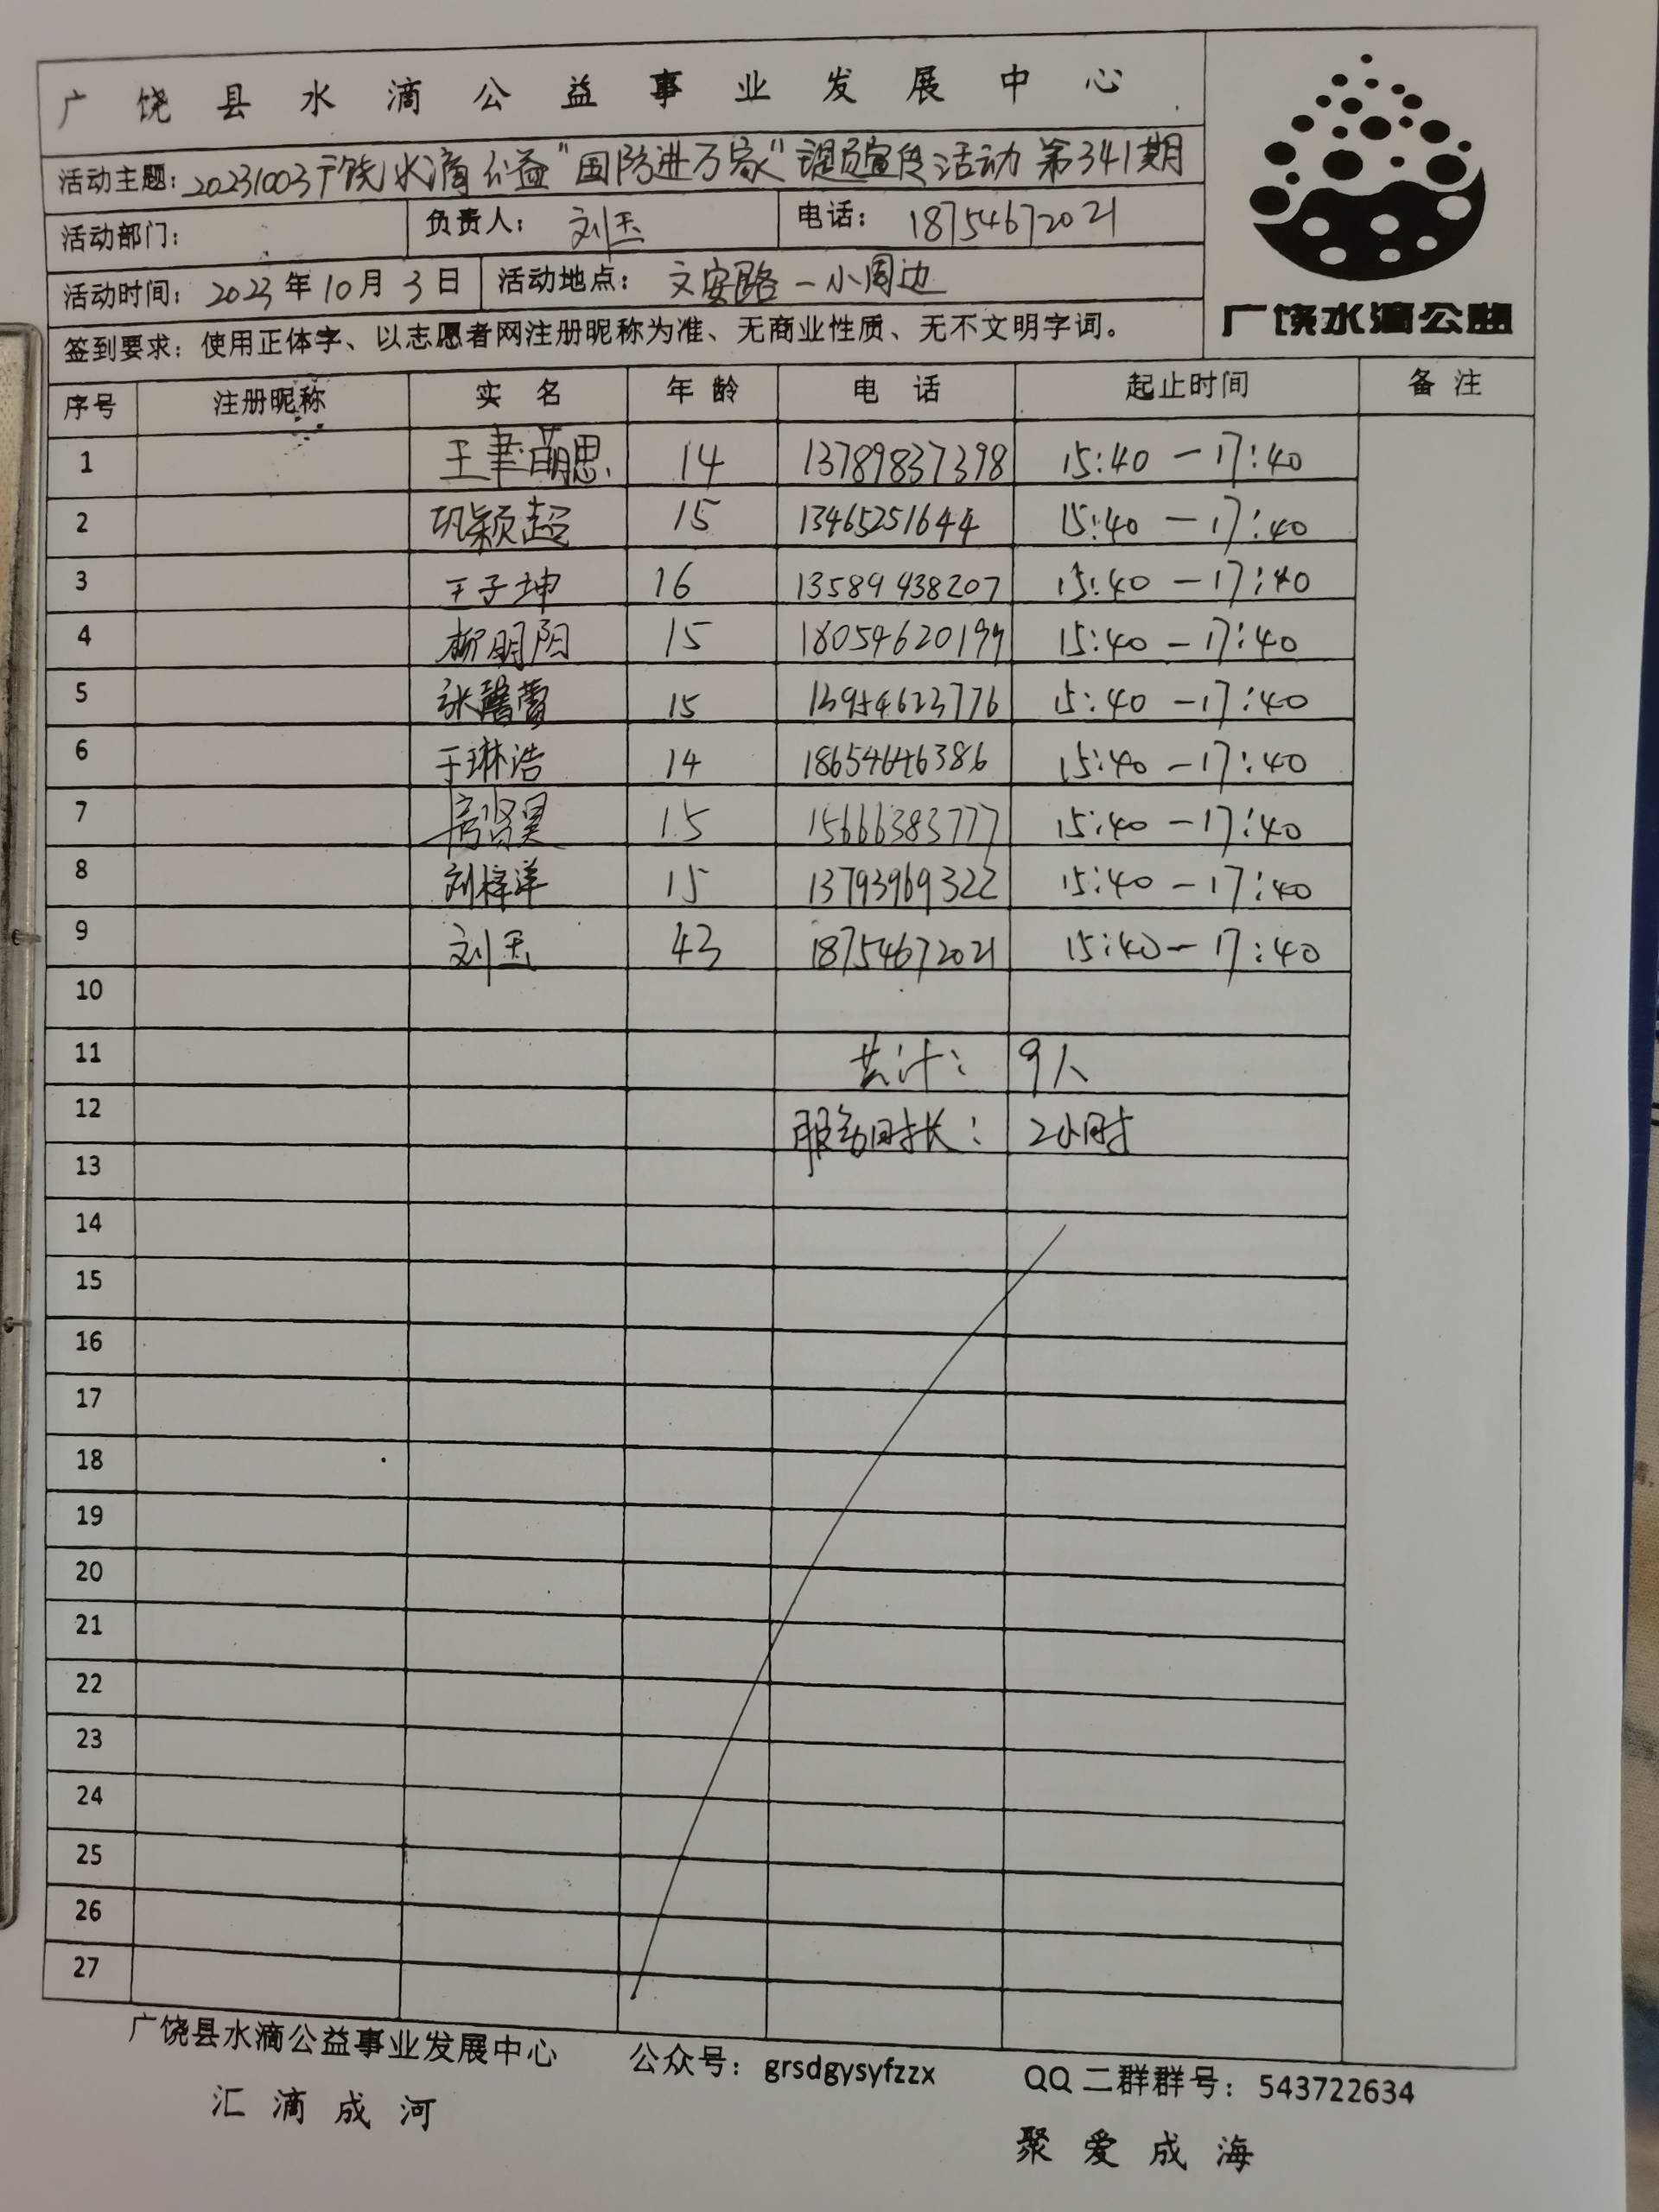 广饶县水滴公益事业发展中心
活动主题：20231003广饶水滴公益“国防进万家”调查宣传活动第341期
活动部门： 负责人：刘玉 电话：18754672021
活动时间：2023年10月3日 活动地点：文安路一小周边
签到要求：使用正体字、以志愿者网注册昵称为准、无商业性质、无不文明字词。
广饶水滴公益
序号 注册昵称 实名 年龄 电话 起止时间 备注
1 王聿萌思 14 13789837398 15:40—17:40
2 巩颖超 15 13465251644 15:40—17:40
3 王子坤 16 13589438207 15:40—17:40
4 柳明阳 15 18054620199 15:40—17:40
5 张馨蕾 15 13954623776 15:40—17:40
6 于琳浩 14 18654646386 15:40—17:40
7 15 15666383777 15:40—17:40
8 刘梓洋 15 13793969322 15:40—17:40
9 刘玉 43 18754672021 15:40—17:40
10
11 共计： 9人
12 服务时长： 2小时
13
14
15
16
17
18
19
20
21
22
23
24
25
26
27
广饶县水滴公益事业发展中心 公众号：grsdgysyfzzx QQ二群群号：543722634
汇滴成河 聚爱成海